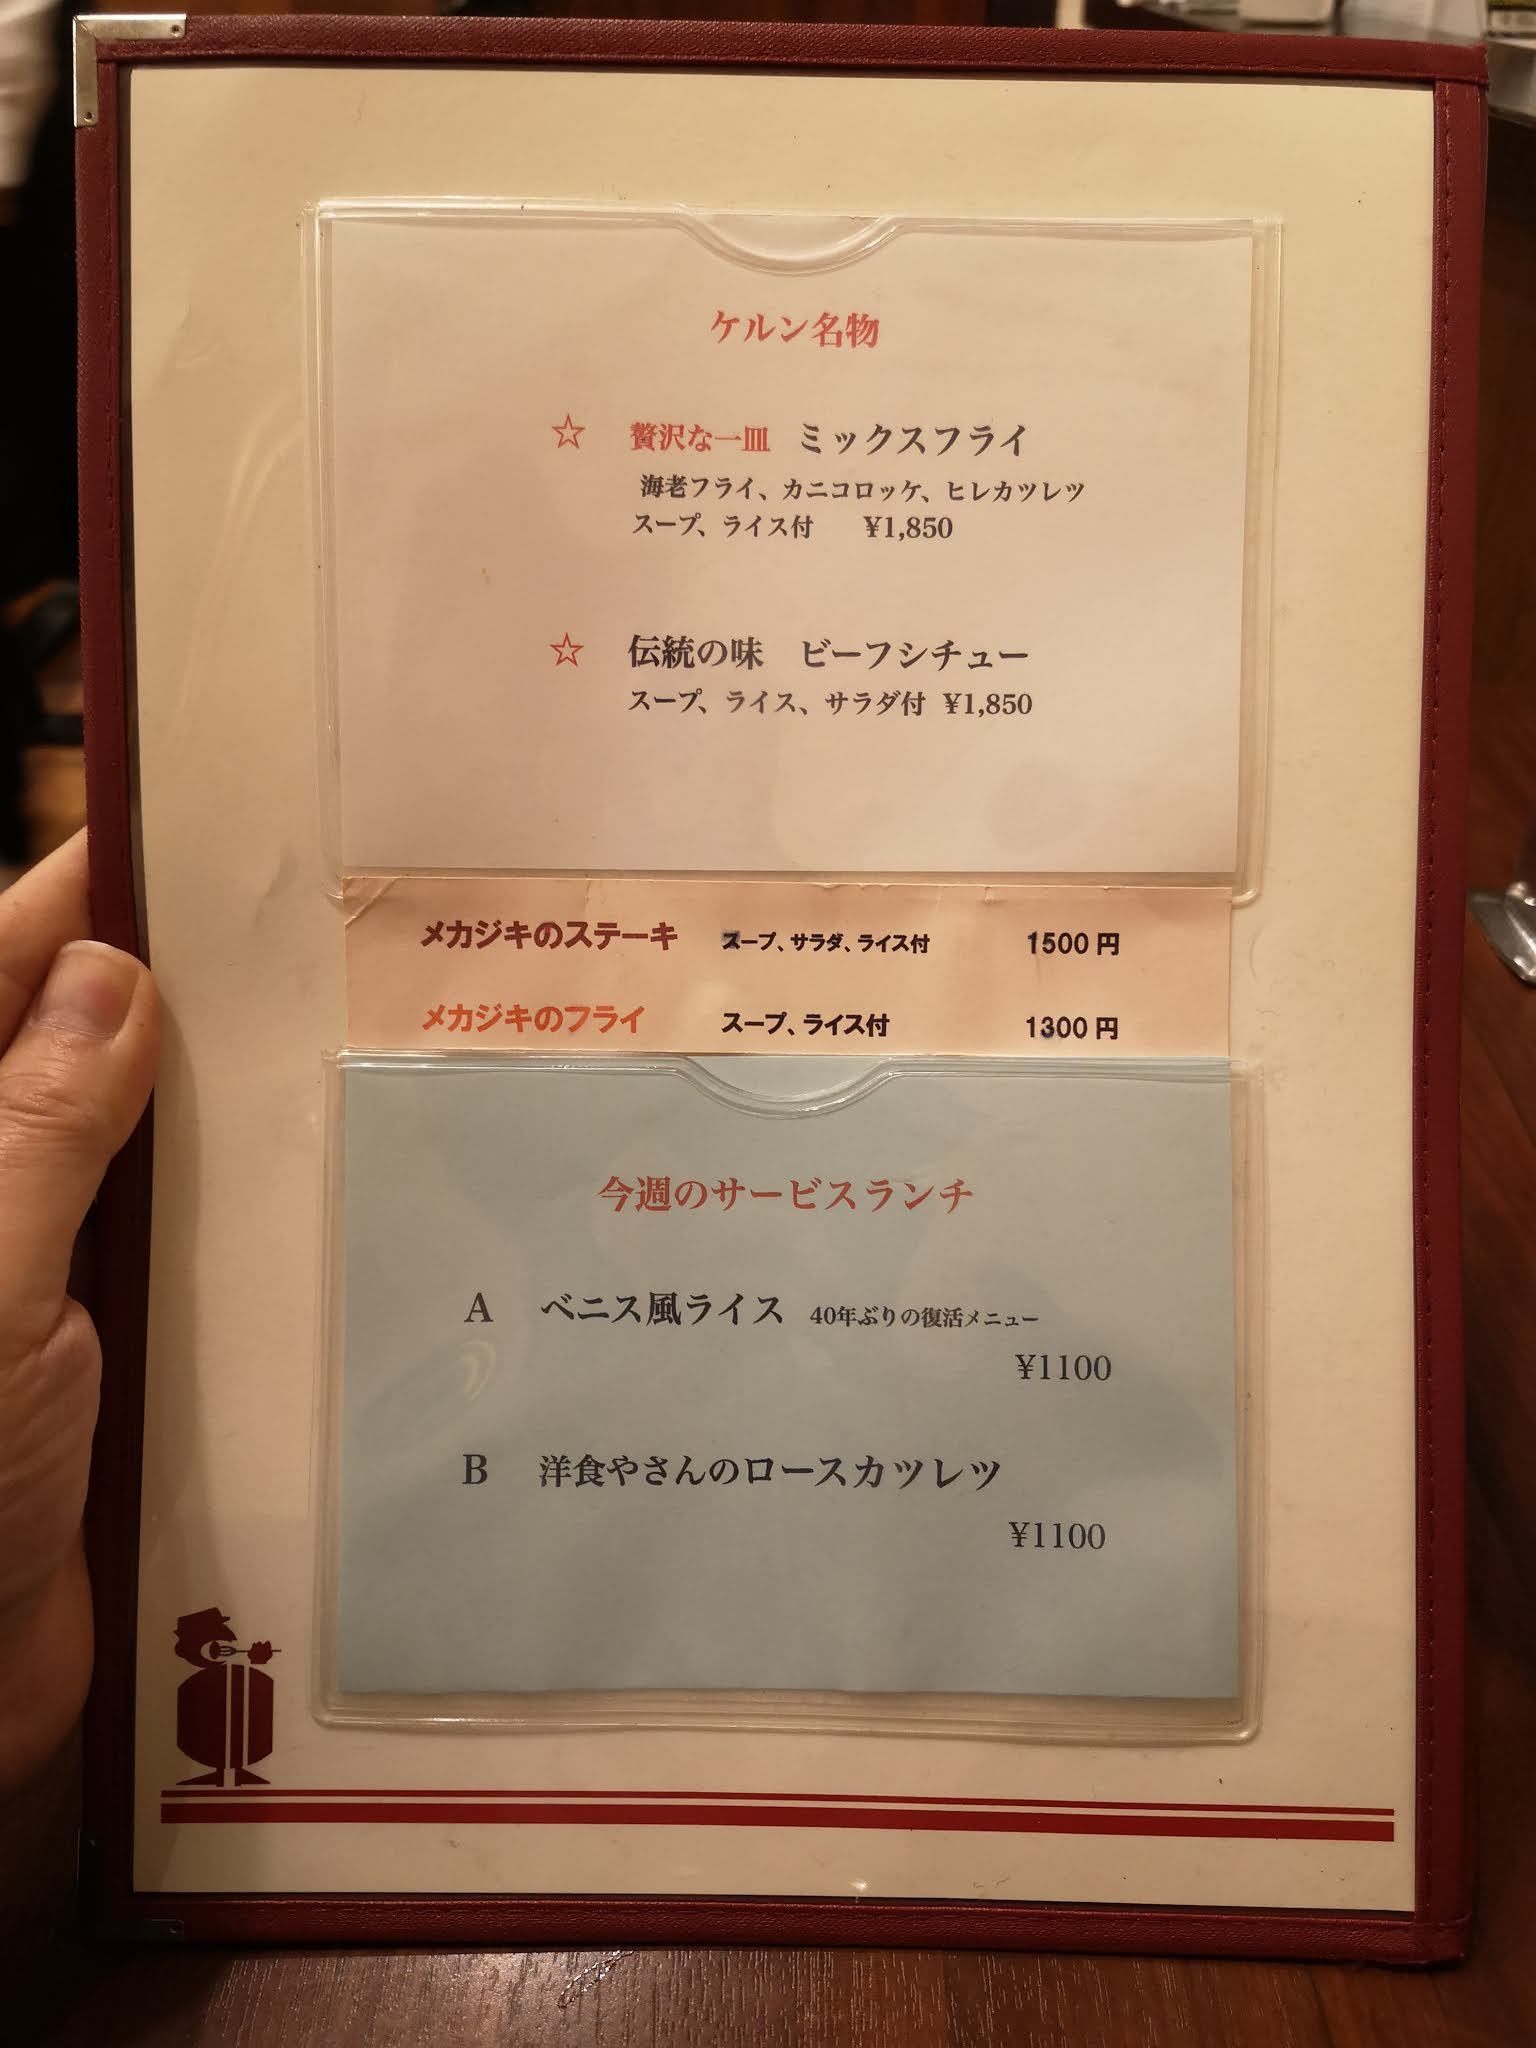 ケルン名物
☆ 贅沢な一皿 ミックスフライ
海老フライ、カニコロッケ、ヒレカツレツ
スープ、ライス付 ¥1,850
☆ 伝統の味 ビーフシチュー
スープ、ライス、サラダ付 ¥1,850
メカジキのステーキ スープ、サラダ、ライス付 1500円
メカジキのフライ スープ、ライス付 1300円
今週のサービスランチ
A ベニス風ライス 40年ぶりの復活メニュー
¥1100
B 洋食やさんのロースカツレツ
¥1100